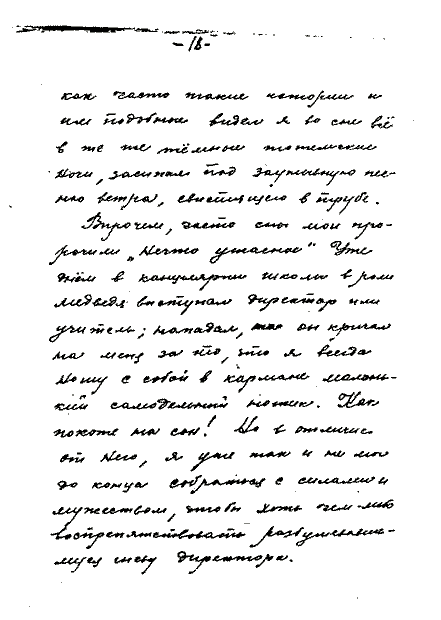 -18-
как часто такие истории и
им подобные видел я во сне всё
в те же тёмные тотемские
ночи, засыпая под заунывную пес-
ню ветра, свистящего в трубе.
Впрочем, часто сны мои про-
рочили „Нечто ужасное“ Уже
днём в канцелярии школы в роли
медведя выступал директор или
учитель; нападал, он кричал
на меня за то, что я всегда
ношу с собой в кармане малень-
кий самодельный ножик. Как
похоже на сон! Но в отличие
от него, я уже так и не мог
до конца собраться с силами и
мужеством, чтобы хоть чем-либо
воспрепятствовать разбушевав-
шемуся гневу директора.